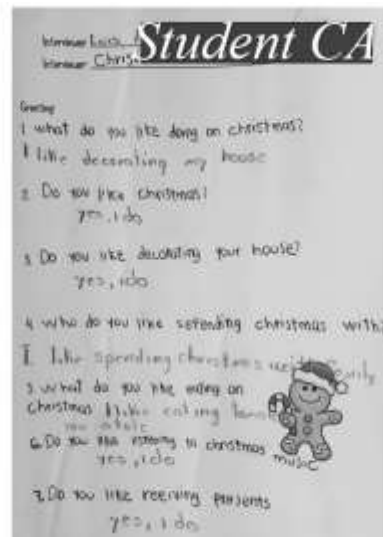 Student CA
Interviewer
Interviewer Christ
Greeting
1 what do you like doing on christmas?
I like decorating my house
2. Do you like christmas?
yes, i do
3. Do you like decorating your house?
yes, i do
4. who do you like spending christmas with?
I like spending christmas with family
5. what do you like eating on
christmas I like eating
6. Do you like listening to christmas music
yes, i do
7. Do you like receiving presents
yes, i do